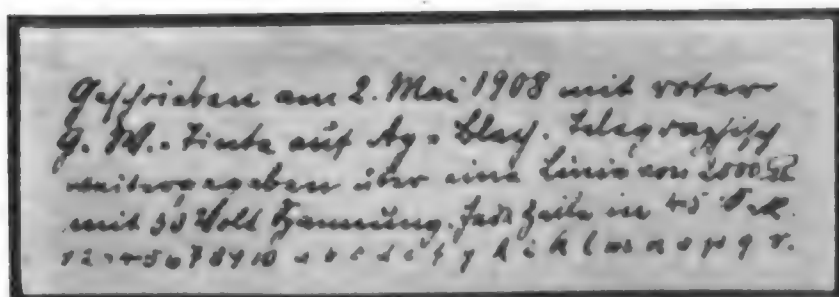 Geschrieben am 2. Mai 1908 mit roter
G. W.-Tinte auf Ag-Blech. Telegraphisch
weitergegeben über eine Linie von 2000 Ω
mit 35 Volt Spannung. Jede Zeile in 45
1 2 3 4 5 6 7 8 9 10 a b c d e f g h i k l m n o p q r.